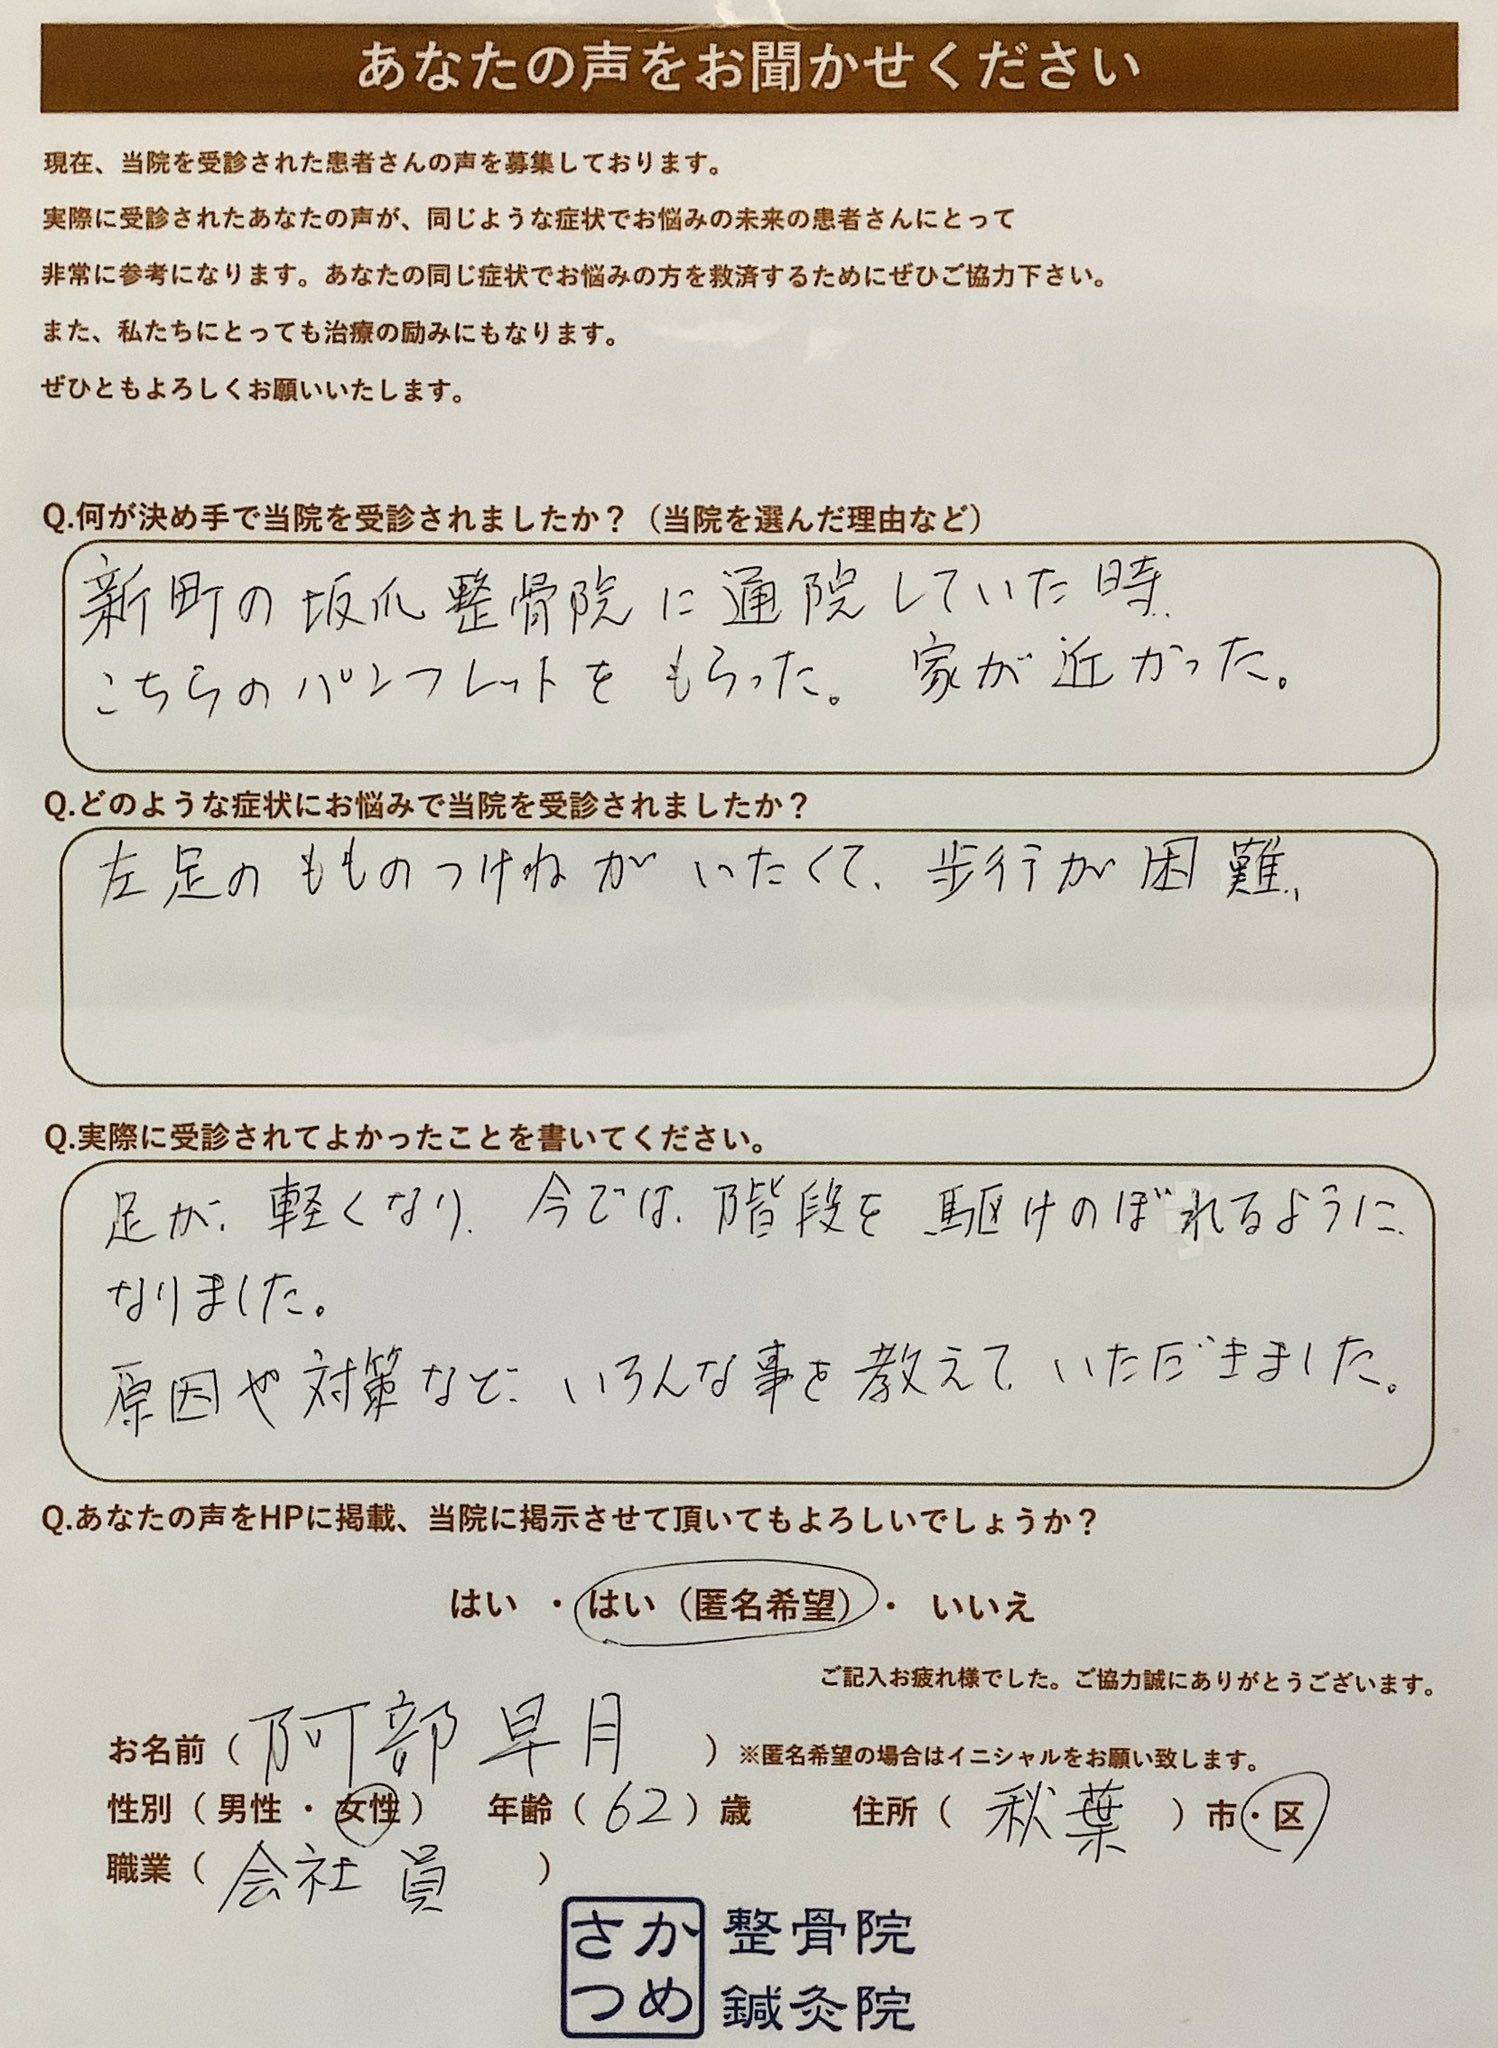 あなたの声をお聞かせください
現在、当院を受診された患者さんの声を募集しております。
実際に受診されたあなたの声が、同じような症状でお悩みの未来の患者さんにとって
非常に参考になります。あなたの同じ症状でお悩みの方を救済するためにぜひご協力下さい。
また、私たちにとっても治療の励みにもなります。
ぜひともよろしくお願いいたします。
Q.何が決め手で当院を受診されましたか？（当院を選んだ理由など）
新町の坂爪整骨院に通院していた時、
こちらのパンフレットをもらった。 家が近かった。
Q.どのような症状にお悩みで当院を受診されましたか？
左足のもものつけねがいたくて、歩行が困難、
Q.実際に受診されてよかったことを書いてください。
足が、軽くなり、今では、階段を駆けのぼれるように、
なりました。
原因や対策など、いろんな事を教えていただきました。
Q.あなたの声をHPに掲載、当院に掲示させて頂いてもよろしいでしょうか？
はい ・ はい（匿名希望）・ いいえ
ご記入お疲れ様でした。ご協力誠にありがとうございます。
お名前（ 阿部 早月 ）※匿名希望の場合はイニシャルをお願い致します。
性別（ 男性 ・ 女性 ） 年齢（ 62 ）歳 住所（ 秋葉 ）市・区
職業（ 会社員 ）
さか 整骨院
つめ 鍼灸院